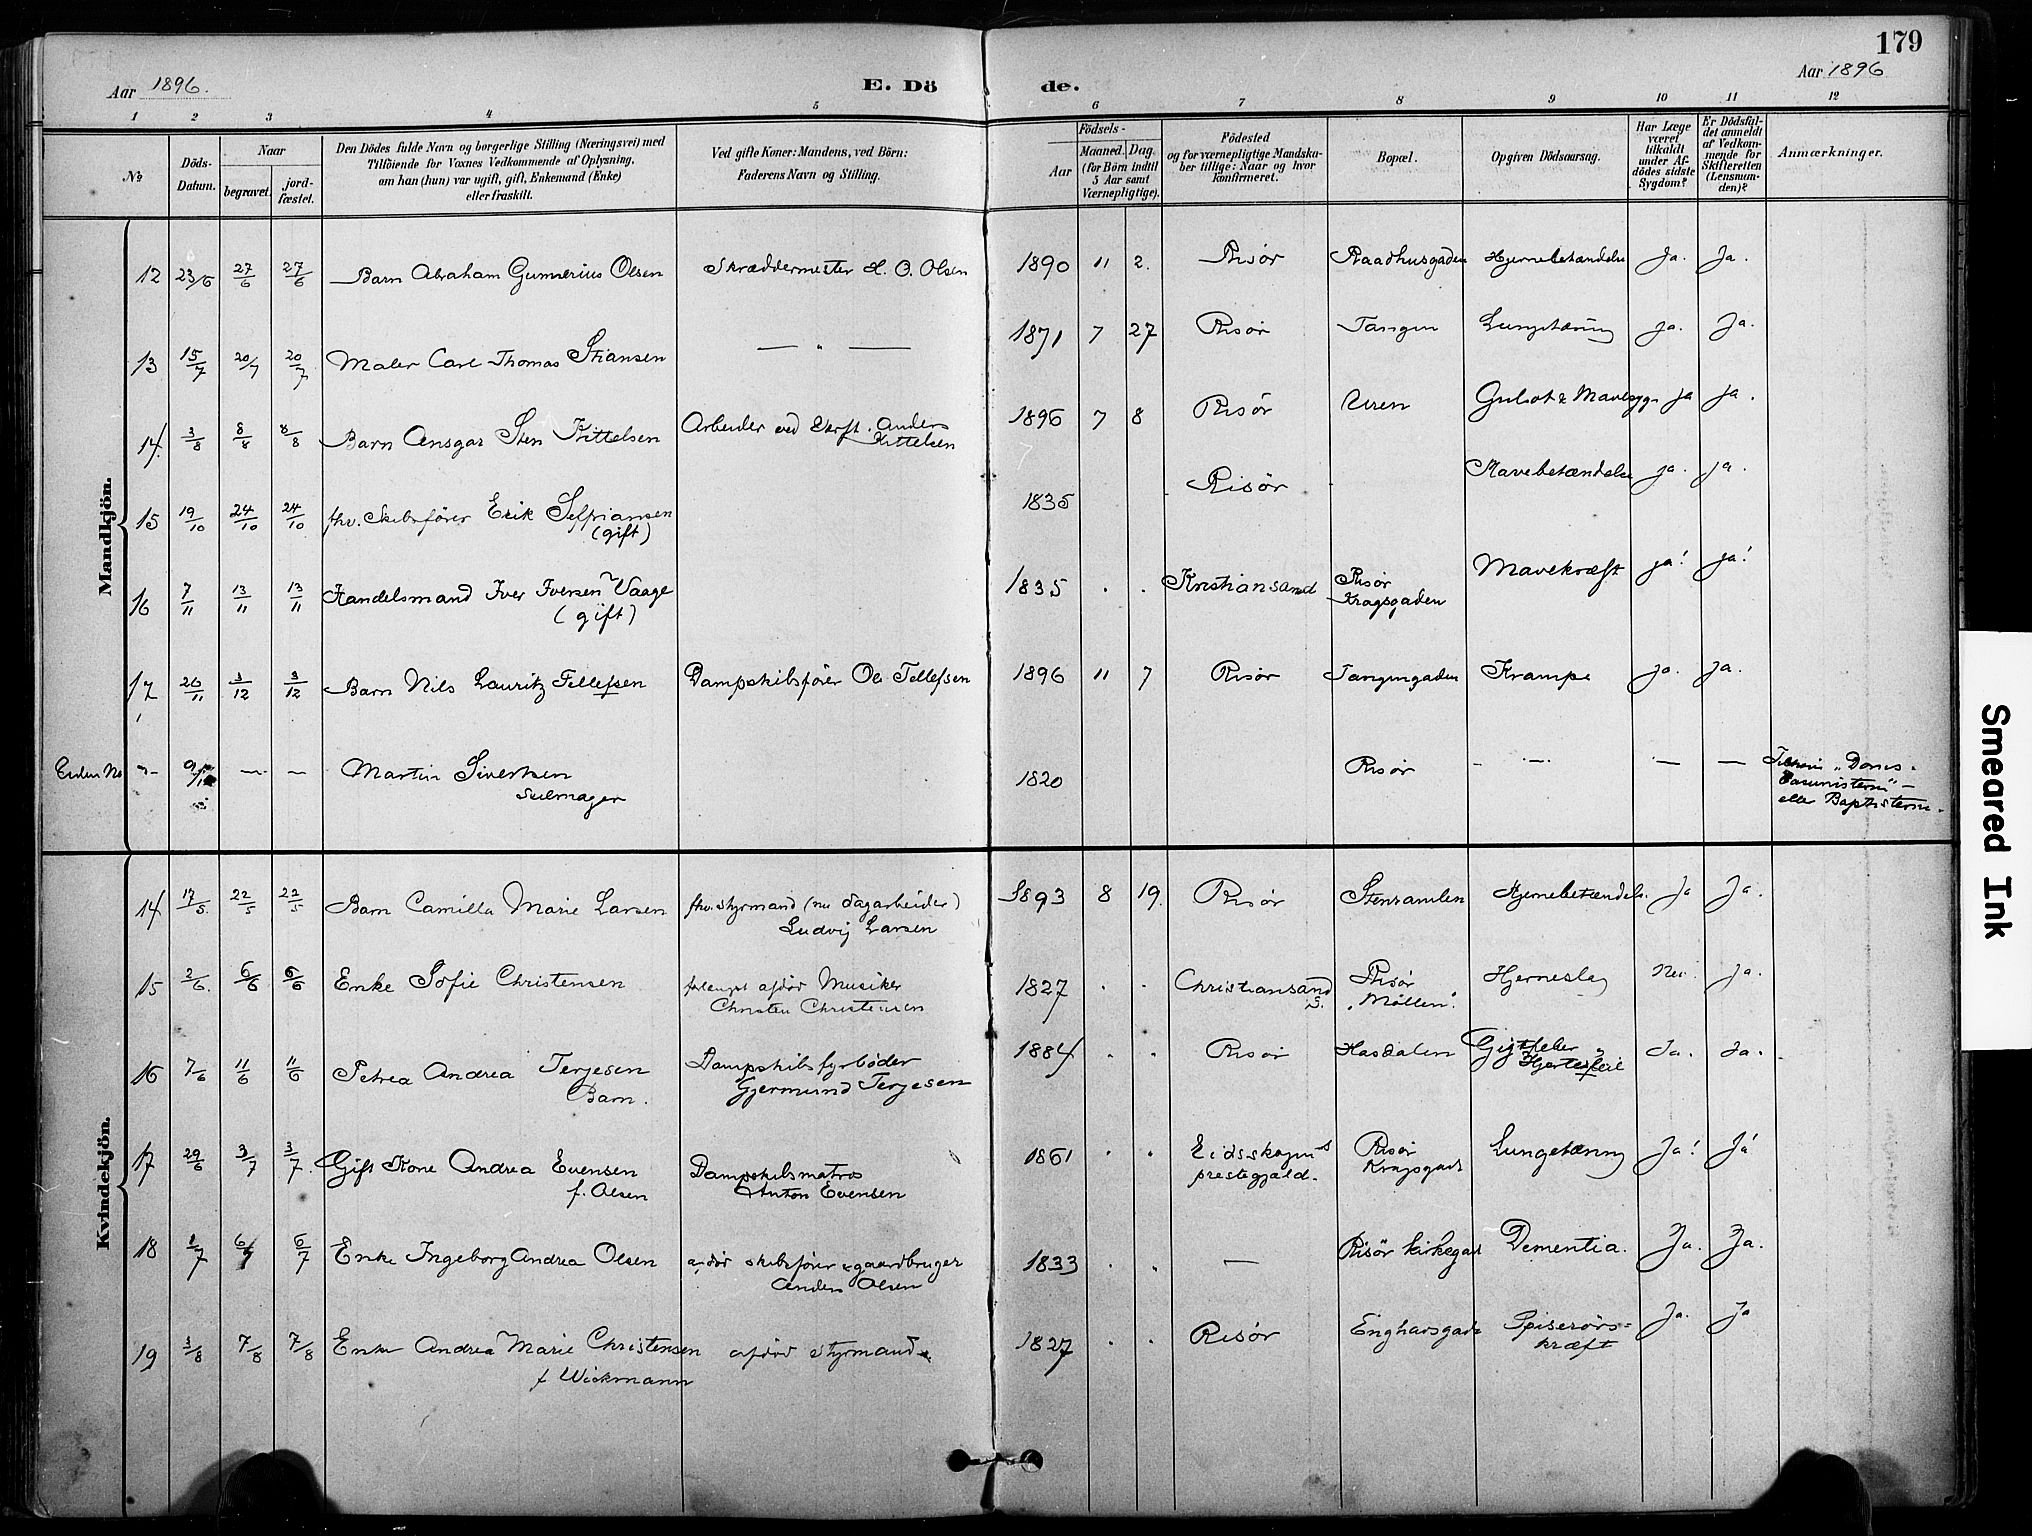 179
Aar 1896.
E. Dö
de.
Aar 1896
1 2 3 4 5 6 7 8 9 10 11 12
No.
Döds-
Datum.
Naar
begravet.
jord-
fæstet.
Den Dödes fulde Navn og borgerlige Stilling (Næringsvei) med
Tilföiende for Voxnes Vedkommende af Oplysning,
om han (hun) var ugift, gift, Enkemand (Enke)
eller fraskilt.
Ved gifte Koner: Mandens, ved Börn:
Faderens Navn og Stilling.
Födsels-
Aar
Maaned. Dag.
(for Börn indtil
5 Aar samt
Værnepligtige).
Födested
og for værnepligtige Mandska-
ber tillige: Naar og hvor
konfirmeret.
Bopæl.
Opgiven Dödsaarsag.
Har Læge
været
tilkaldt
under Af-
dödes sidste
Sygdom?
Er Dödsfal-
det anmeldt
af Vedkom-
mende for
Skifteretten
(Lensman-
den)?
Anmærkninger.
Mandkjön.
12 23/6 27/6 27/6 Barn Abraham Gunnerius Olsen Skræddermester H. O. Olsen 1890 11 2. Risør Raadhusgaden Hjernebetændelse Ja. Ja.
13 15/7 20/7 20/7 Maler Carl Thomas Stiansen — " — 1871 7 27 Risør Tangen Lungetæring ja. Ja.
14. 3/8 8/8 8/8 Barn Ansgar Sten Kittelsen Arbeider ved Anders
Kittelsen 1896 7 8 Risør Uren Gulsot & Mavesyg. ja ja.
15 19/10 24/10 24/10 fhv. Skibsfører Erik Sefriansen
(gift) 1835 Risør Mavebetændelse ja. ja.
16 7/11 13/11 13/11 Handelsmand Iver Iversen Vaage
(gift) 1835 . . Kristiansand Risør
Kragsgaden Mavekræft ja! ja!
17 26/11 3/12 3/12 Barn Nils Lauritz Tellefsen Dampskibsfører Ole Tellefsen 1896 11 7 Risør Tangengaden Krampe ja. ja.
Uden No — — Martin Sivertsen
Seilmager 1820 Risør — — — —
eller Baptisterne.
Kvindekjön.
14 17/5. 22/5 22/5 Barn Camilla Marie Larsen fhv. styrmand (nu dagarbeider)
Ludvig Larsen 1893 8 19. Risør Stensamlen Hjernebetændelse. Ja Ja.
15 2/6. 6/6 6/6 Enke Sofie Christensen forlængst afdød Musiker
Christen Christensen 1827 . . Christiansand
S. Risør
"Møllen". Hjerneslag Nei. ja.
16 7/6 11/6 11/6 Petrea Andrea Terjesen
Barn. Dampskibsfyrbøder
Gjermund Terjesen 1884 . . Risør Hasdalen Gigtfeber "
Hjertefeil Ja. Ja.
17 29/6 3/7 3/7. Gift Kone Andrea Evensen
f. Olsen Dampskibsmatros
Anton Evensen 1861 . . Eidsskogens
prestegjæld. Risør
Kragsgade Lungetæring Ja! Ja
18 1/7 6/7 6/7 Enke Ingeborg Andrea Olsen afdød skibsfører & gaardbruger
Anders Olsen 1833 . . — Risør kirkegad Dementia. Ja. Ja.
19 3/8 7/8 7/8 Enke Andrea Marie Christensen
f Wickmann afdød styrmand 1827 . . Risør Enghavsgade Spiserørs-
kræft Ja. Ja
Smeared Ink